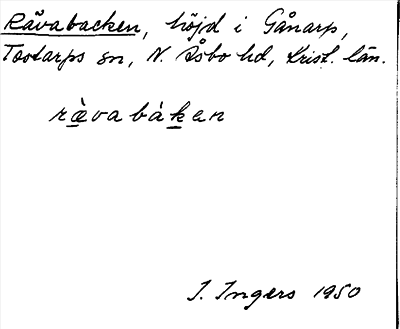 Rävabacken, höjd i Gånarp,
Tostarps sn, N. Åsbo hd, Krist. län.
rævabàken
I. Ingers 1950